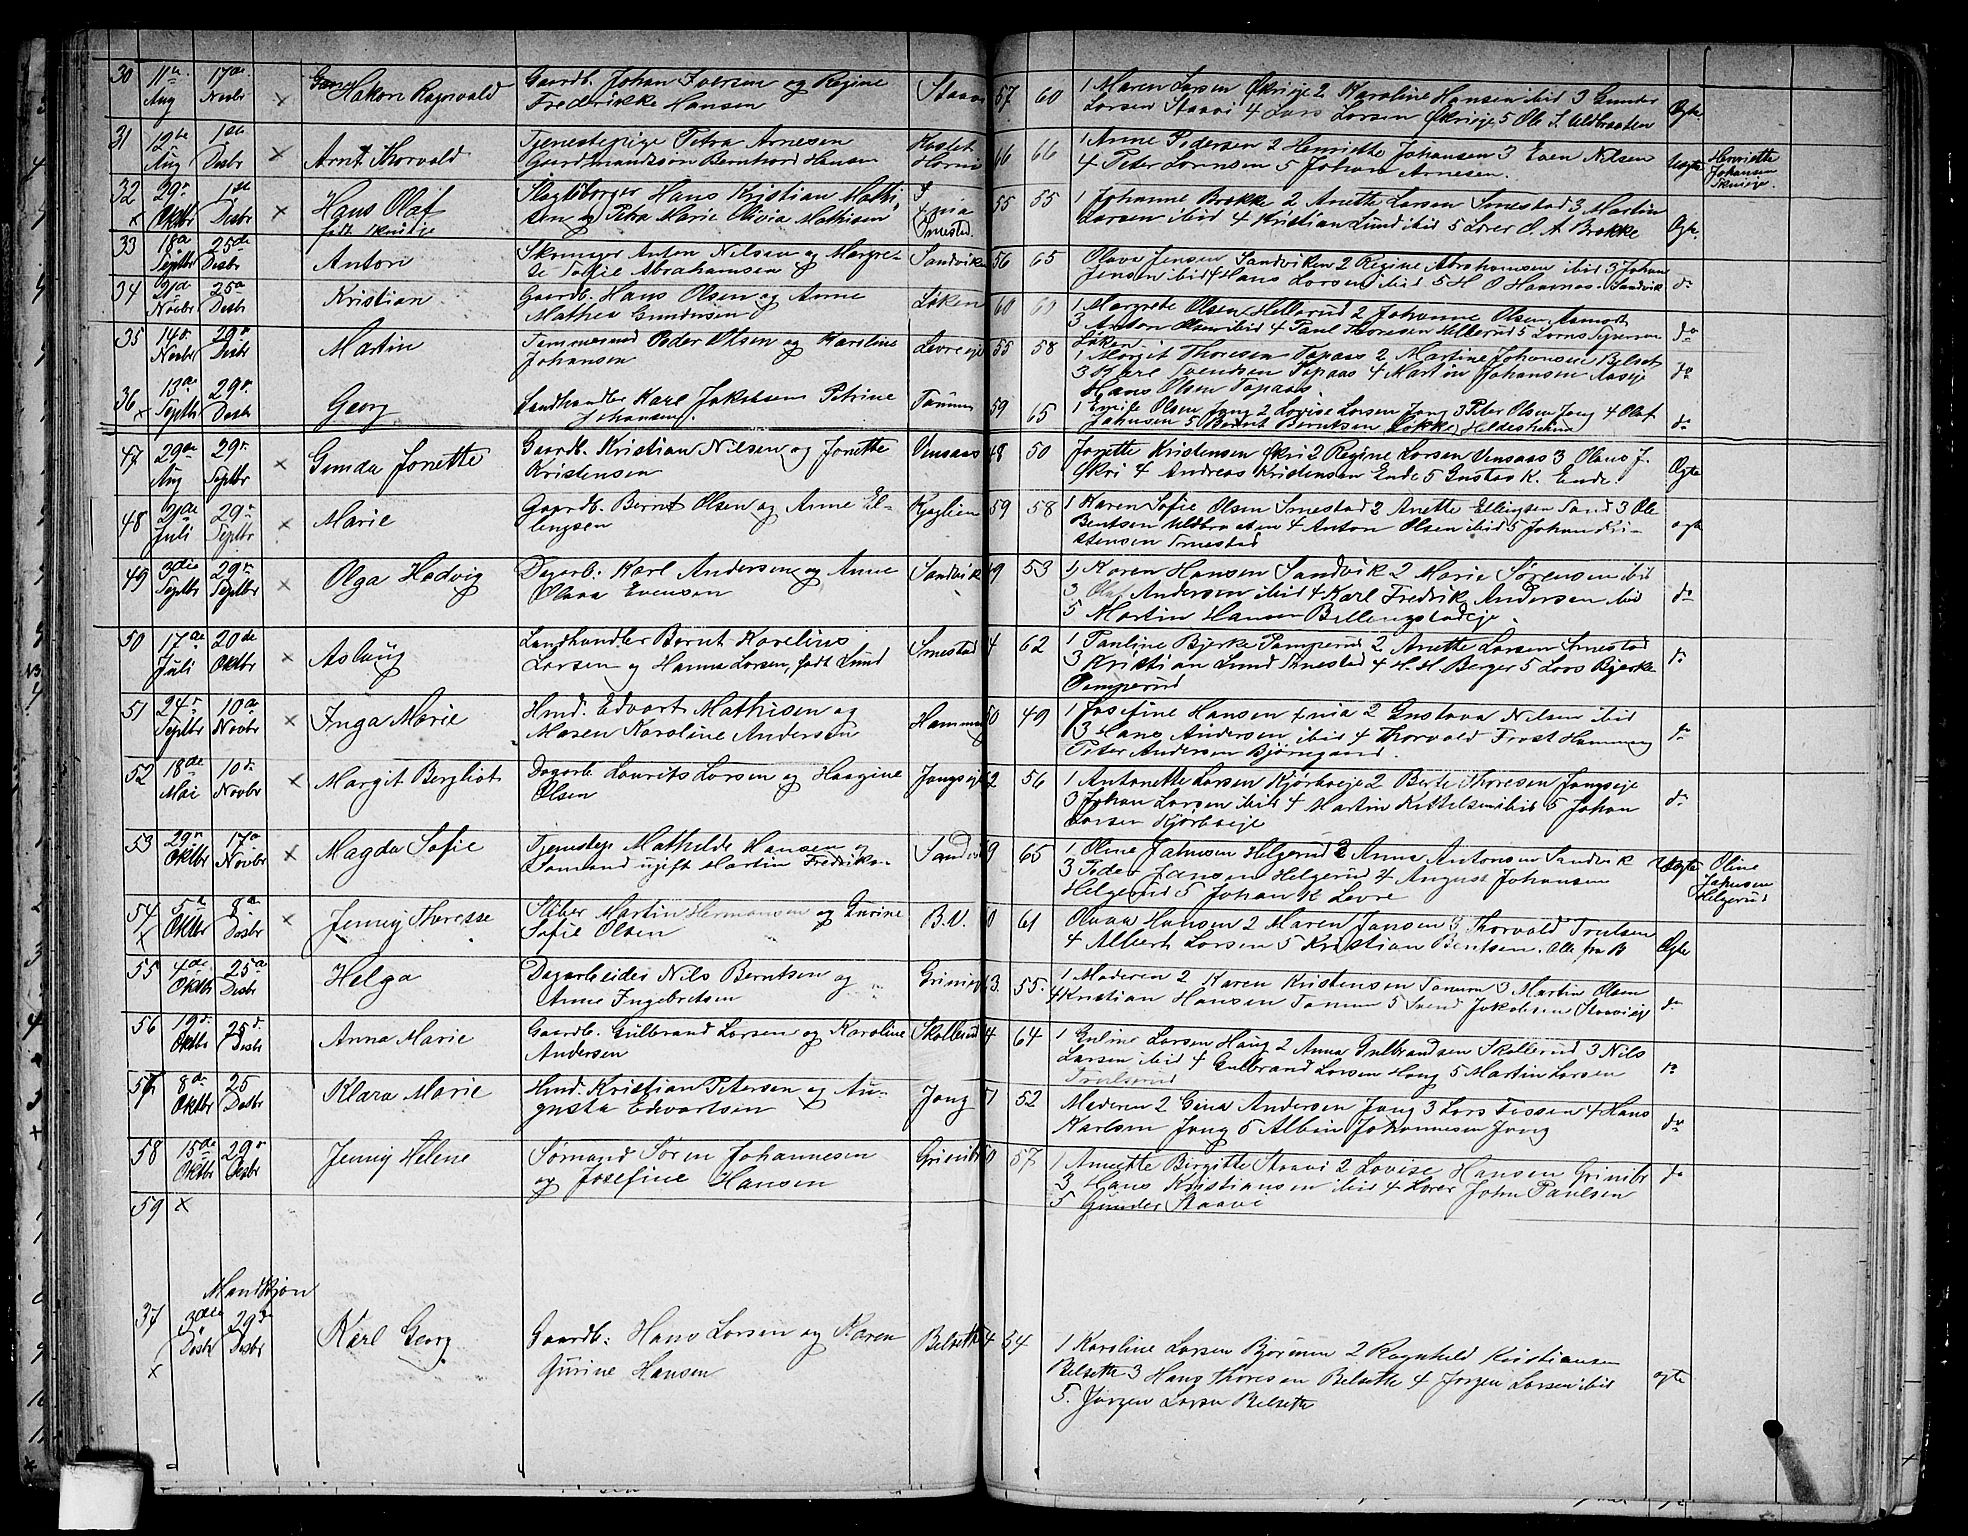 30 11te Aug 17de Novbr × Hakon Ragnvald Gaardb. Johan Iversen og Regine
Fredrikke Hansen Staavi 57 60 1 Maren Larsen Økrieje 2 Karoline Hansen ibid 3 Gunder
Larsen Staavi 4 Lars Larsen Økrieje 5 Ole S. Uldbraaten Ægte
31 12te Aug 1ste Desbr × Arnt Thorvald Tjenestepige Petra Arnesen
Gaardmandssøn Berntord Hansen 66 66 1 Anne Pedersen 2 Henriette Johansen 3 Even Nilsen
4 Peter Larensen 5 Johan Arnesen. Uægte Henriette
Johansen
32 × 29de Oktbr 1ste Desbr × Hans Olaf Slagtborger Hans Kristian Mathi-
sen og Petra Marie Olivia Mathisen
født Skutje Smestad 55 55 1 Johanne Brokke 2 Anette Larsen Smestad 3 Martin
Larsen ibid 4 Kristian Lund ibid 5 Lærer O. A Brokke Ægte
33 18de Septbr 25de Desbr Anton Skomager Anton Nilsen og Margre-
te Sofie Abrahamsen Sandviken 56 65 Olava Jensen Sandviken 2 Regine Abrahamsen ibid 3 Johan
Jensen ibid 4 Hans Larsen ibid 5 H O Hamnas. Sandvik do
34 21de Novbr 25de Desbr Kristian Gaardb. Hans Olsen og Anne
Mathea Gundersen Løken 60 60 1 Margrete Olsen Hellerud 2 Johanne Olsen
3 Anton Olsen ibid 4 Paul Thoresen Hellerud 5
Løken do
35 14de Novbr 29de Desbr Martin Tømmermand Peder Olsen og Karoline
Johansen Levreeje 55 58 1 Margit Thoresen Topaas 2 Martine Johansen Belset
3 Karl Svendsen Topaas 4 Martin Johansen
Hans Olsen Topaas do
36 × 13de Septbr 29de Desbr Georg Landhandler Karl Jakobsen Petrine
Johansen. Tanum 59 65 1 Emilie Olsen Jong 2 Lovise Larsen Jong 3 Peter Olsen Jong 4 Olaf
Jahnsen 5 Bernt Berntsen Løkke Hildesheim do
47 29de Aug 29de Septbr × Gunda Jonette Gaardb. Kristian Nilsen og Jonette
Kristensen Vensaas 48 50 Jonette Kristensen Økri 2 Regine Larsen Vensaas 3 Olaus J.
Økri 4 Andreas Kristensen Ende 5 Gustav K. Ende Ægte
48 21de Juli 29de Septbr × Marie Gaardb. Bernt Olsen og Anne El-
lingsen Kjaglien 59 58 1 Karen Sofie Olsen Smestad 2 Anette Ellingsen Sand 3 Ole
Berntsen Uldbraaten 4 Anton Olsen ibid 5 Johan Kri-
stensen Smestad ægte
49 3die Septbr 29de Septbr × Olga Hedvig Dagarb. Karl Andersen og Anne
Olava Evensen Sandvik 49 53 1 Karen Hansen Sandvik 2 Marie Sørensen ibid
3 Olaf Andersen ibid 4 Karl Fredrik Andersen ibid
5 Martin Hansen Billingstadeje. do
50 17de Juli 20de Oktbr × Aslaug Landhandler Bernt Karelius
Larsen og Hanna Larsen, født Lund Smestad 4 62 1 Pauline Bjerke Pamperud 2 Anette Larsen Smestad
3 Kristian Lund Smestad 4 H. H Berger 5 Lars Bjerke
Pamperud do
51 24de Septbr 10de Novbr × Inga Marie Hmd. Edvart Mathisen og
Maren Karoline Andersen Hammang 50 49 1 Josefine Hansen 2 Gustava Nilsen ibid
3 Hans Andersen ibid 4 Thorvald Frost Hammang
Peter Andersen Bjørnegaard do
52 18de Mai 10de Novbr × Margit Bergliot Dagarb Laurits Larsen og Haagine
Olsen Jongseje 2 56 1 Antonette Larsen Kjørboeje 2 Berte Thoresen Jongseje
3 Johan Larsen ibid 4 Martin Kittelsen ibid 5 Johan
Larsen Kjørboeje do
53 29de Oktbr 17de Novbr × Magda Sofie Tjenestep Mathilde Hansen og
Sømand ugift Martin Fredrikse- 9 65 1 Oline Jahnsen Helgerud 2 Anna Antonsen Sandvik
3 Peder Jansen Helgerud 4 August Johansen
Helgerud 5 Johan K Levre Uægte Oline
Jahnsen
Helgerud
54 × 5te Oktbr 8de Desbr × Jenny Therese Støber Martin Hermansen og Gurine
Sofie Olsen B.V. 0 61 Olava Hansen 2 Maren Jansen 3 Thorvald Trulsen
4 Albert Larsen 5 Kristian Berntsen. Alle fra B Ægte
55 4de Oktbr 25de Desbr Helga Dagarbeider Nils Berntsen og
Anne Ingebretsen 3. 55. 1 Moderen 2 Karen Kristensen Tanum 3 Martin Olsen
4 Kristian Hansen Tanum 5 Svend Jakobsen Staavieje do
56 19de Oktbr 25de Desbr Anna Marie Gaardb. Gulbrand Larsen og Karoline
Andersen Skollerud 4 64 1 Guline Larsen Haug 2 Anna Gulbrandsen Skollerud 3 Nils
Larsen ibid 4 Gulbrand Larsen Haug 5 Martin Larsen
Trulsrud do
57 8de Oktbr 25 Desbr Klara Marie Hmd. Kristian Petersen og Au-
gusta Edvartsen Jong 51 52 Moderen 2 Gina Andersen Jong 3 Lars Tossen 4 Hans
Karlsen Jong 5 Albin Johannesen Jong do
58 15de Oktbr 29de Desbr Jenny Helene Sømand Søren Johannesen
og Josefine Hansen Grinibr 0 57 1 Annette Birgitte Staavi 2 Lovise Hansen Grinibr
3 Hans Kristiansen ibid 4 Lærer John Paulsen
5 Gunder Staavi do
59 ×
Mandkjøn
37 × 3die Desbr 29de Desbr Karl Georg Gaardb: Hans Larsen og Karen
Gurine Hansen Belseth 4 54 1 Karoline Larsen Bjørum 2 Ragnhild Kristiansen
Belseth 3 Hans Thoresen Belseth 4 Jørgen Larsen ibid
5. Jørgen Larsen Belseth ægte